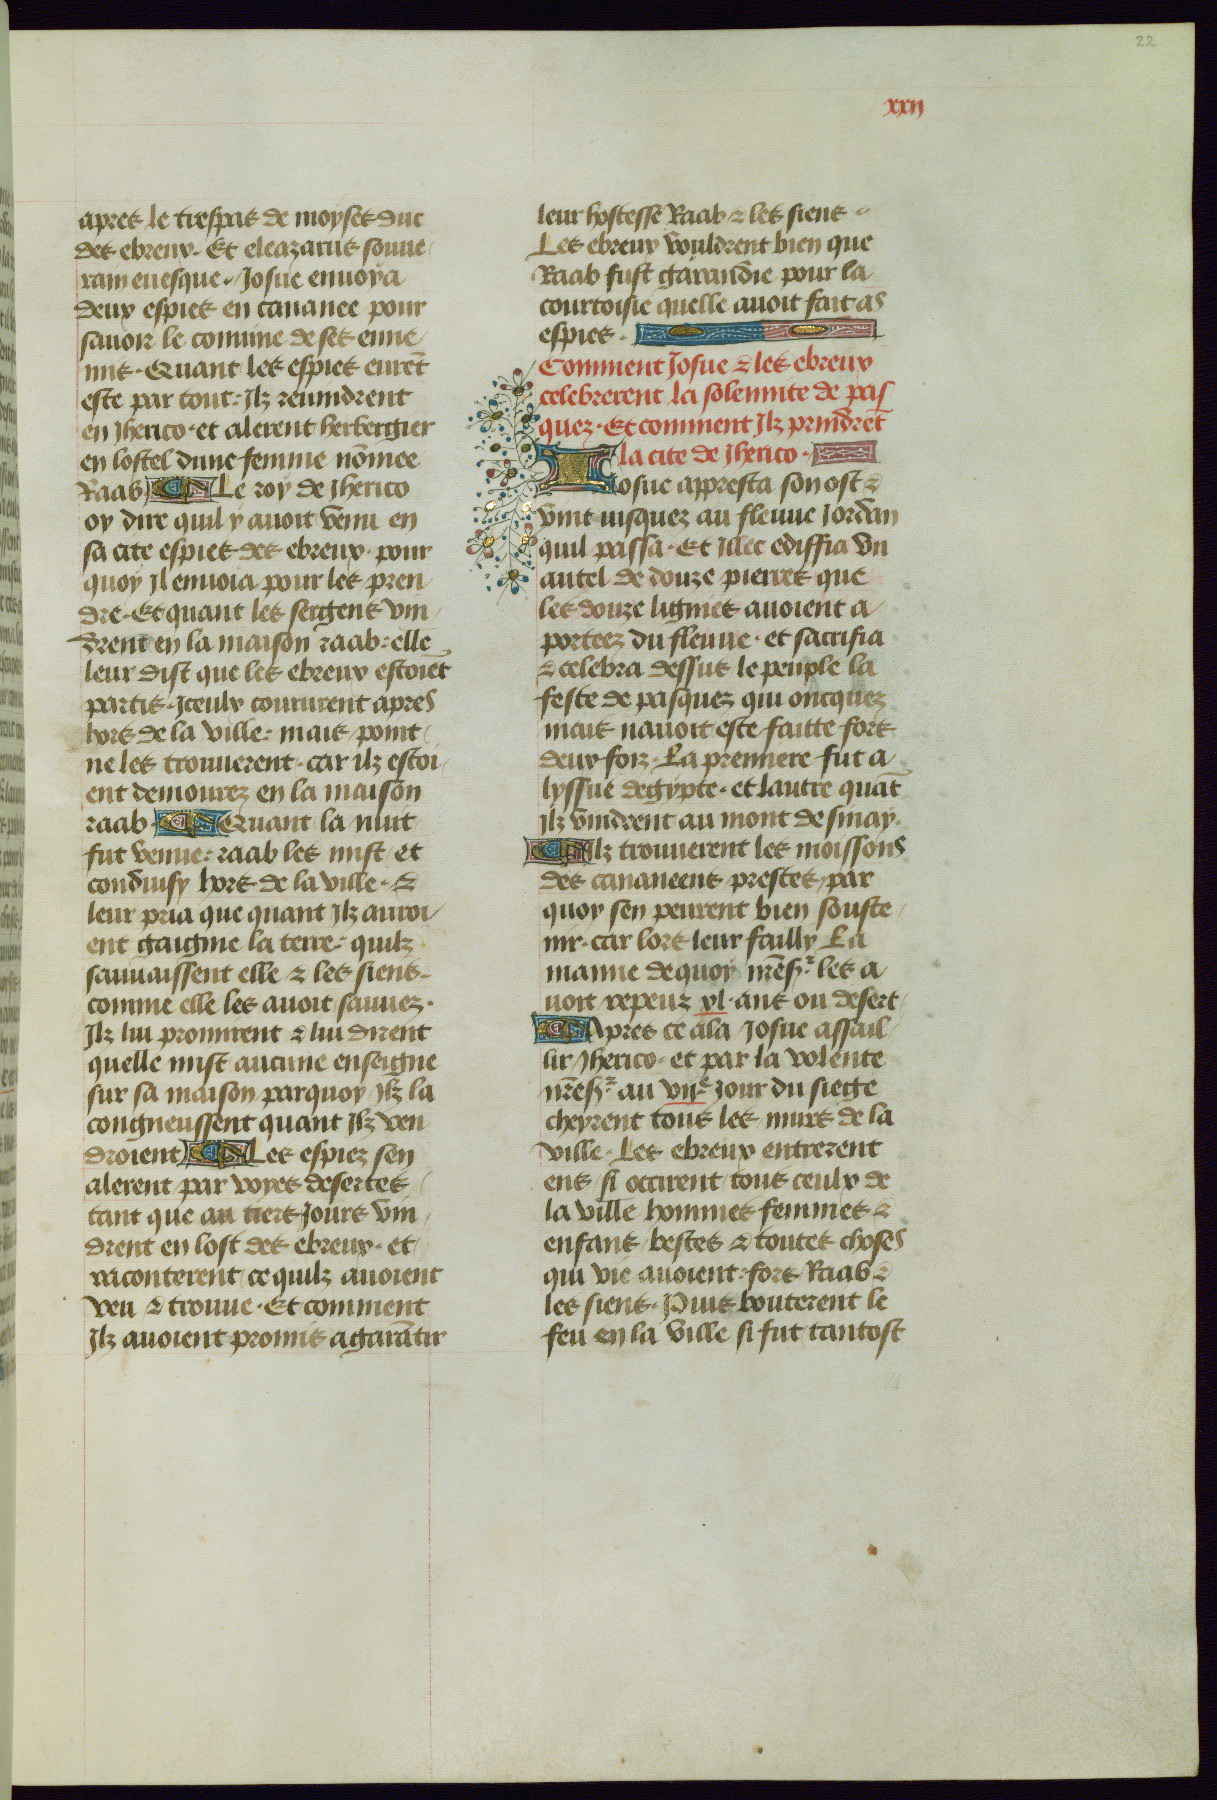 22
xxii
apres le trespas de moyses duc
des ebreux. Et eleazarus souue
rain euesque. Josue enuoya
deux espies en cananee pour
sauoir le commune de ses enne
mis. Quant les espies eurẽt
este par tout: Ilz reuindrent
en Jherico. et alerent herbergier
en lostel dune femme nõmee
Raab Le roy de Jherico
oy dire quil y auoit venu en
sa cite espies des ebreux. pour
quoy Il enuoia pour les pren
dre. Et quant les sergens vin
drent en la maison raab: elle
leur dist que les ebreux estoiẽt
partis. Iceulx coururent apres
hors de la ville: mais point
ne les trouuerent. car ilz estoi
ent demourez en la maison
raab. Quant la nuit
fut venue: raab les mist et
conduisy hors de la ville. &
leur pria que quant Ilz auroi
ent gaignie la terre: quilz
sauuaissent elle & les siens.
comme elle les auoit sauuez.
Ilz lui promirent & lui dirent
quelle mist aucune enseigne
sur sa maison parquoy Ilz la
congneussent quant Ilz ven
droient Les espiez sen
alerent par voyes desertes
tant que au tiers Jours vin
drent en lost des ebreux. et
raconterent ce quilz auoient
veu & trouue. Et comment
Ilz auoient promis a garãtir
leur hostesse Raab & les siens
Les ebreux vouldrent bien que
Raab fust garandie pour la
courtoisie quelle auoit fait as
espies.
Comment Josue & les ebreux
celebrerent la solennite de pas
quez. Et comment Ilz prindrẽt
la cite de Jherico.
Iosue appresta son ost &
vint iusquez au fleuue Jordan
quil passa. Et Illec ediffia vn
autel de douze pierres que
les douze lignies auoient a
porteez du fleuue. et sacrifia
& celebra dessus le peuple la
feste de pasquez qui oncquez
mais nauoit este faitte fors
deux foiz. La premiere fut a
lyssue degypte. et lautre quãt
Ilz vindrent au mont de sinay.
Ilz trouuerent les moissons
des cananeens prestes par
quoy sen peurent bien souste
nir. car lors leur failly La
manne dequoy nr̃es. les a
uoit repeuz xl. ans ou desert
Apres ce ala Josue assail
lir Jherico. et par la volente
nr̃es. au vije Jour du siege
cheyrent tous les murs de la
ville. Les ebreux entrerent
ens si occirent tous ceulx de
la ville hommes femmes &
enfans bestes & toutes choses
qui vie auoient: fors Raab &
les siens. Puis bouterent le
feu en la ville si fut tantost